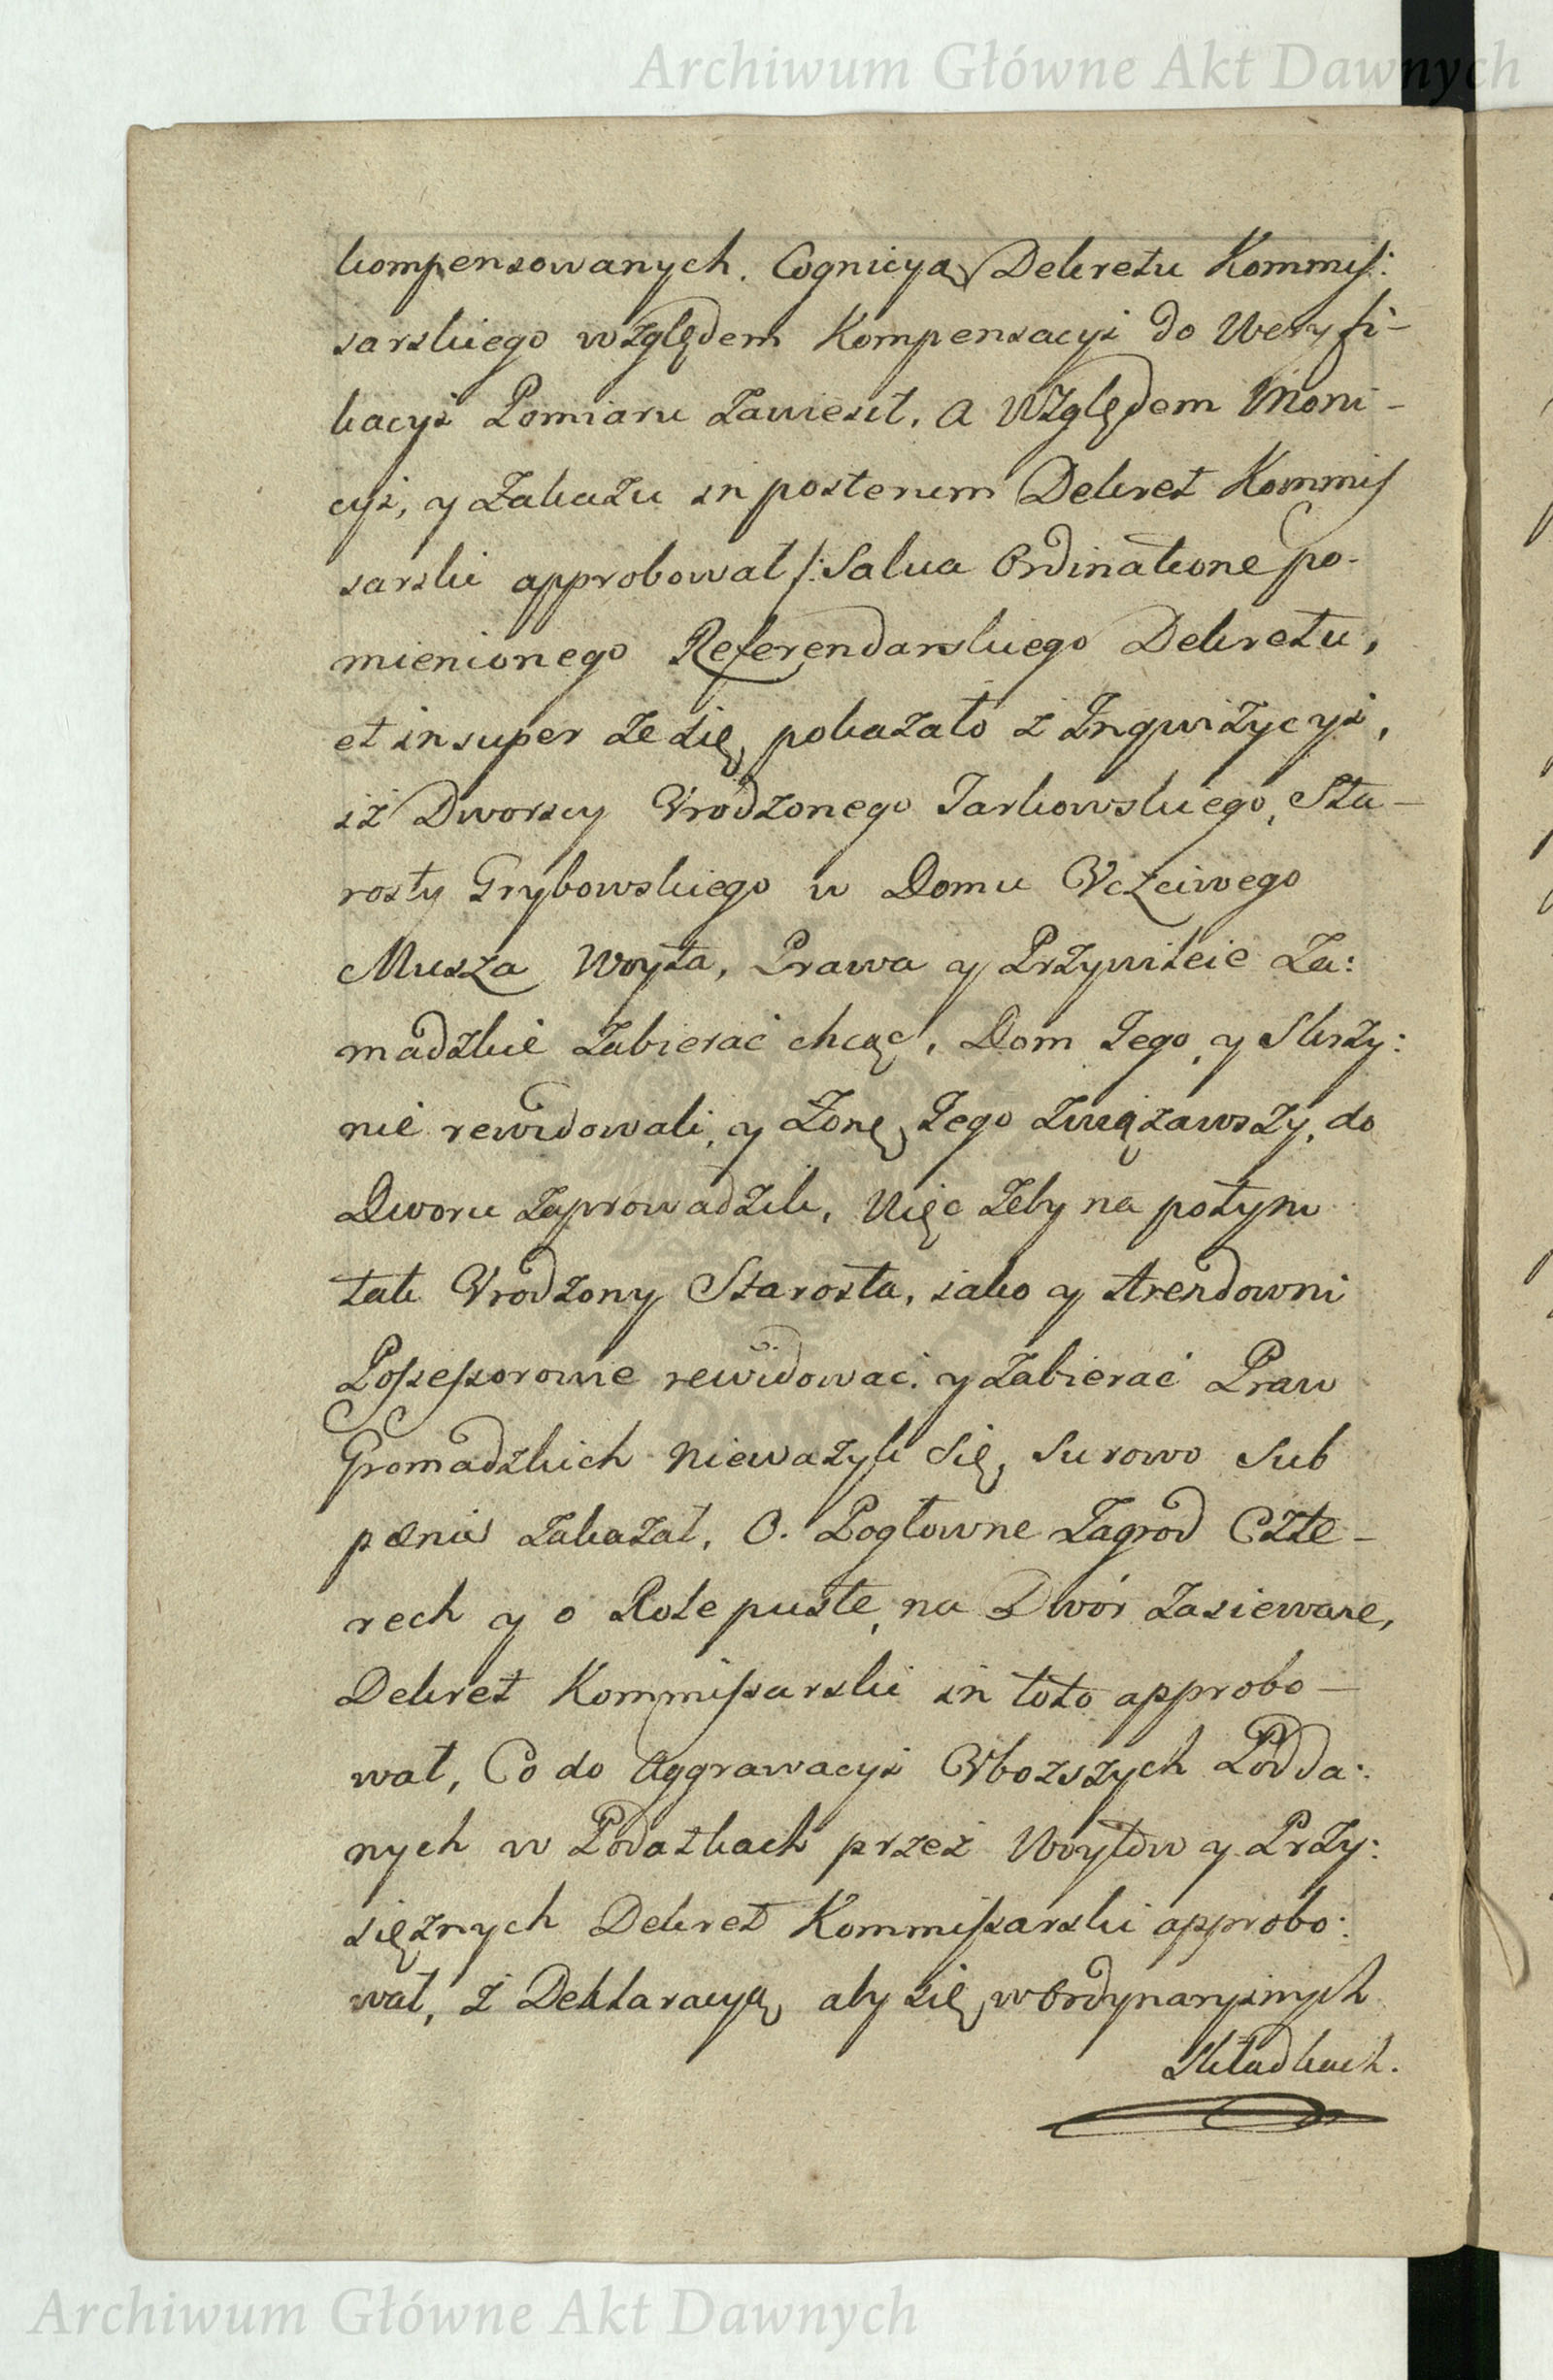 Archiwum Główne Akt Dawnych
kompensowanych. Cognicyą Dekretu Kommis:
sarskiego względem Kompensacyi do Weryfi-
kacyi Pomiaru zawiesił. a Względem Moni-
cyi, y Zakazu in posterum Dekret Kommis
sarski approbował /: Salva Ordinatione po-
mienionego Referendarskiego Dekretu,
et insuper że się pokazało z Inqwizycyi,
iż Dworscy Urodzonego Jarkowskiego, Sta-
rosty Grybowskiego w Domu Uczciwego
Musza Woyta, Prawa y Przywileie Za:
madzkie zabierać chcąc, Dom Jego, y Skrzy:
nie rewidowali, y Żonę Jego związawszy, do
Dworu zaprowadzili, Więc żeby na potym
tak Urodzony Starosta, iako y Arendowni
Possessorowie rewidować y zabierać Praw
Gromadzkich nieważyli się, surowo sub
pænis zakazał. O. Pogłowne Zagród Czte-
rech y o Role puste, na Dwór zasiewane,
Dekret Kommissarski in toto approbo-
wał, Co do Aggrawacyi Uboższych Podda:
nych w Podatkach przez Woytów y Przy:
siężnych Dekret Kommissarski approbo:
wał, z Deklaracyą, aby się w ordynaryinych
Składkach.
Archiwum Główne Akt Dawnych